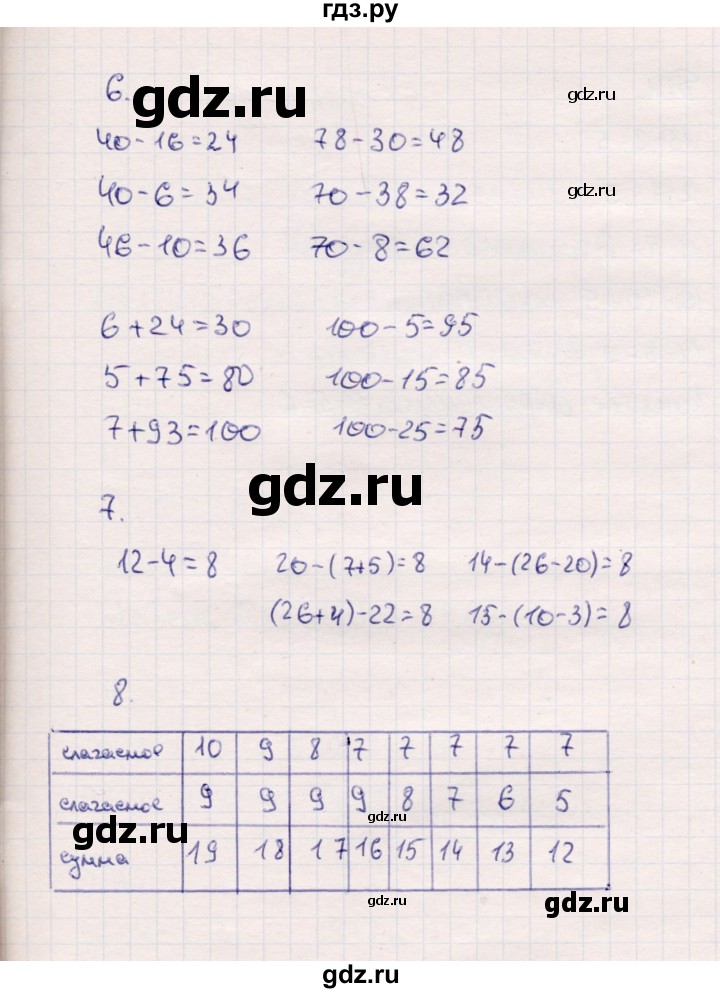 гдз.ру
6.
gdz.ru
gdz.ru
40-16=24 78-30=48
40-6=34 70-38=32
gdz.ru
46-10=36 70-8=62
6+24=30 100-5=95
5+75=80 100-15=85
7+93=100 100-25=75
gdz.ru
7.
12-4=8 20-(7+5)=8 14-(26-20)=8
(26+4)-22=8 15-(10-3)=8
8.
слагаемое 10 9 8 7 7 7 7 7
слагаемое 9 9 9 9 8 7 6 5
gdz.ru
сумма 19 18 17 16 15 14 13 12
gdz.ru
gdz.ru
gdz.ru